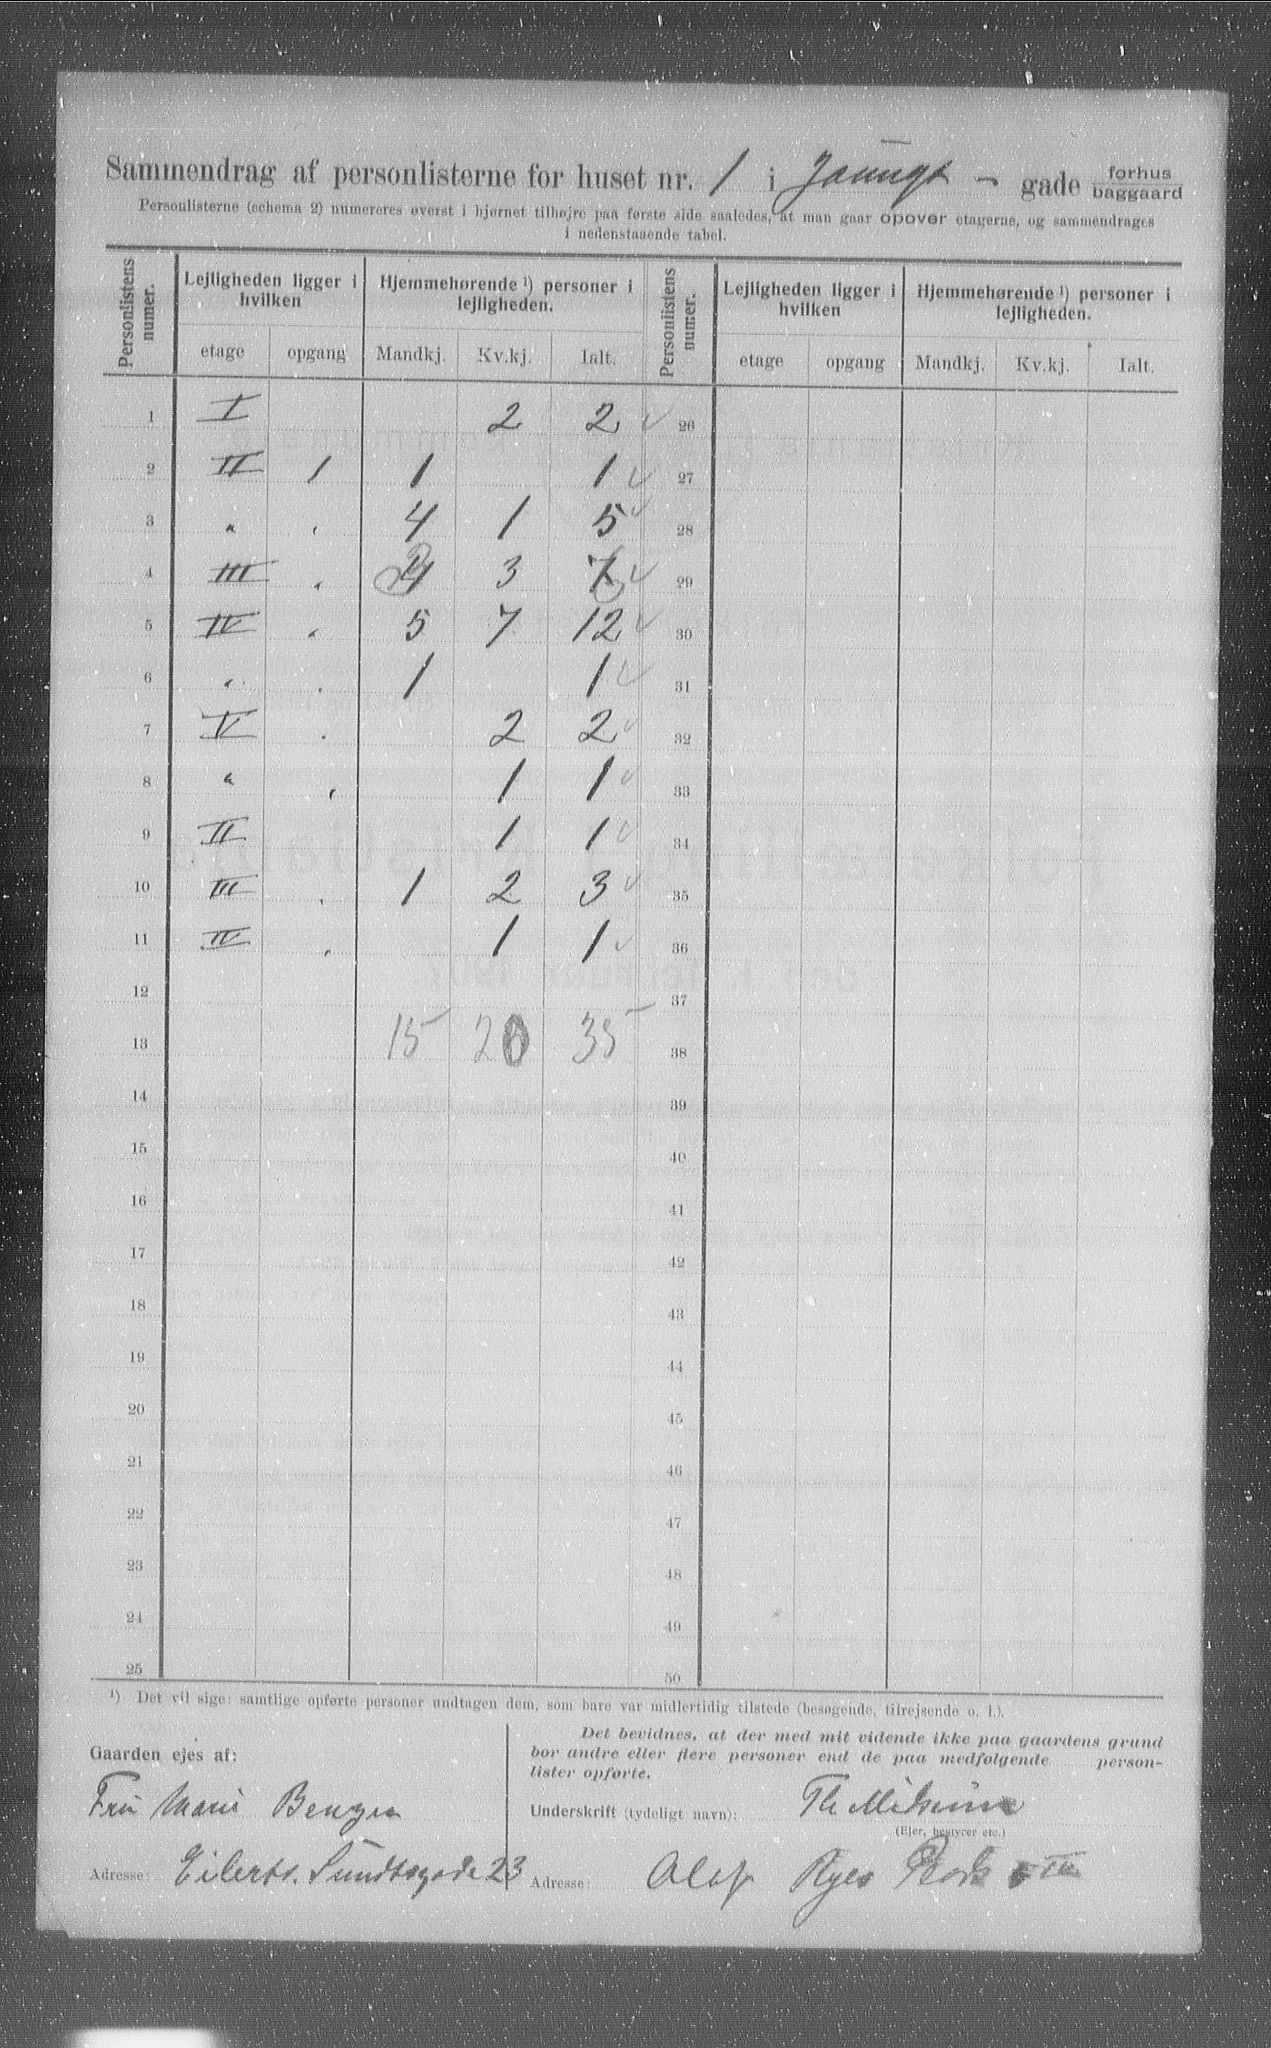 Sammendrag af personlisterne for huset nr. 1 i Jaungt - gade forhus baggaard
Personlisterne (schema 2) numereres øverst i hjørnet tilhøjre paa første side saaledes, at man gaar opover etagerne, og sammendrages
i nedenstaaende tabel.
Personlistens numer. Lejligheden ligger i hvilken Hjemmehørende ¹) personer i lejligheden. Personlistens numer. Lejligheden ligger i hvilken Hjemmehørende ¹) personer i lejligheden.
etage opgang Mandkj. Kv.kj. Ialt. etage opgang Mandkj. Kv.kj. Ialt.
1 I 2 2 ✓ 26
2 II 1 1 1 ✓ 27
3 " . 4 1 5 ✓ 28
4 III . 3 ✓ 29
5 IV . 5 7 12 ✓ 30
6 " . 1 1 ✓ 31
7 V . 2 2 ✓ 32
8 " . 1 1 ✓ 33
9 II 1 1 ✓ 34
10 III . 1 2 3 ✓ 35
11 IV . 1 1 ✓ 36
12 37
13 15 20 35 38
14 39
15 40
16 41
17 42
18 43
19 44
20 45
21 46
22 47
23 48
24 49
25 50
¹) Det vil sige: samtlige opførte personer undtagen dem, som bare var midlertidig tilstede (besøgende, tilrejsende o. l.).
Det bevidnes, at der med mit vidende ikke paa gaardens grund
bor andre eller flere personer end de paa medfølgende person-
lister opførte.
Gaarden ejes af:
Fru Marie Benzen
Underskrift (tydeligt navn): Th
(Ejer, bestyrer etc.)
Adresse: Eilerts. Sundtsgade 23
Adresse: Olaf Ryes